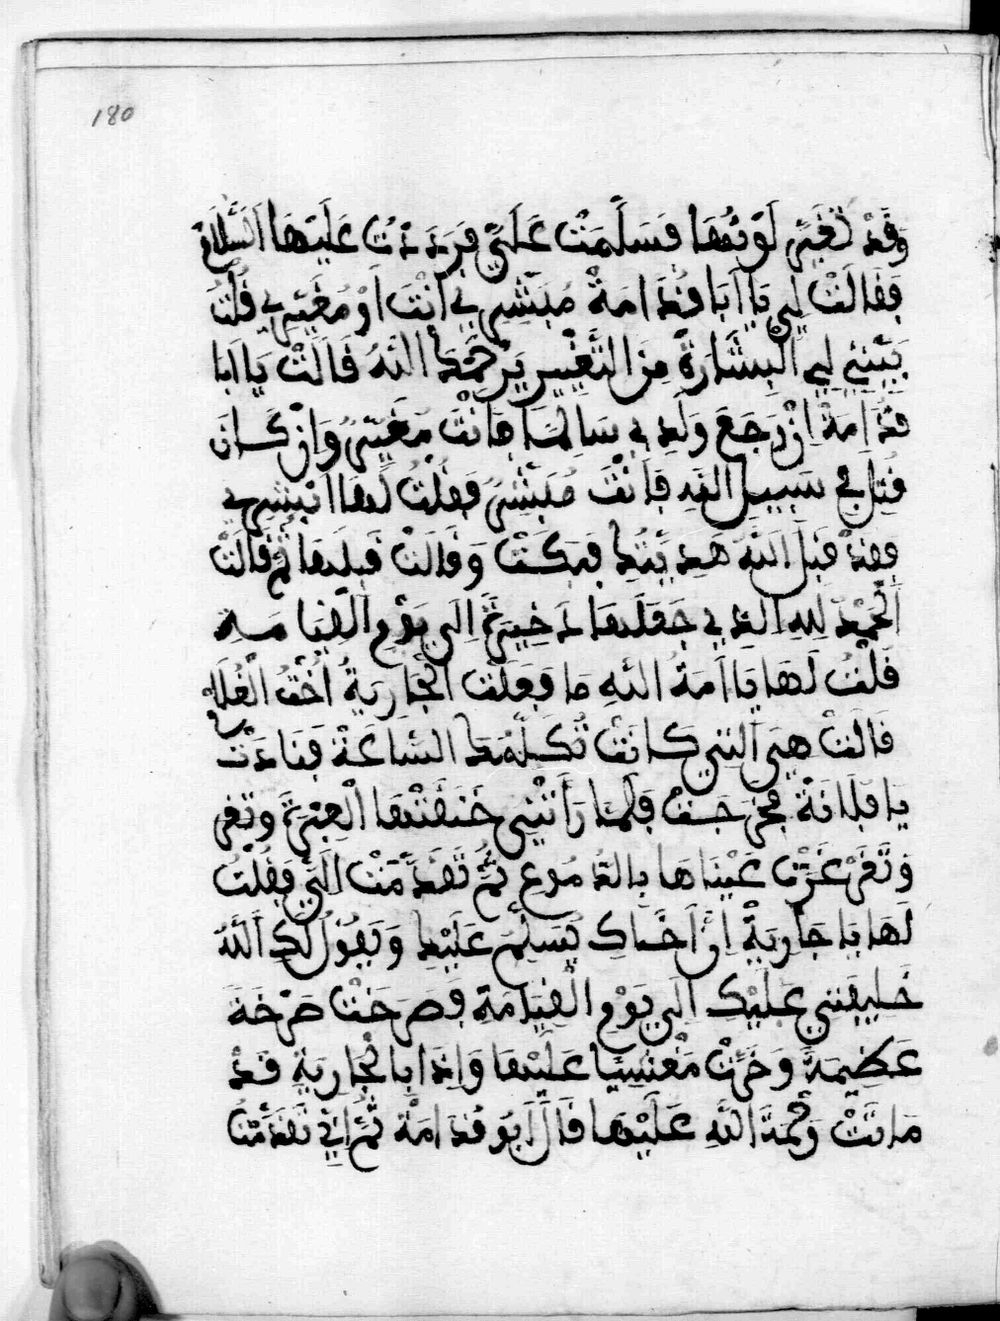 180
وَقَدْ تَغَيَّرَ لَوْنُهَا فَسَلَّمَتْ عَلَيَّ فَرَدَدْتُ عَلَيْهَا السَّلَامَ
فَقَالَتْ لِي يَا أَبَا قُدَامَةْ مُبَشِّرِي أَنْتَ أَوْ مُغَيِّرِي قُلْتُ
بَيِّنِي لِي الْبِشَارَةَ مِنَ التَّغْيِيرِ يَرْحَمُكِ اللَّهُ قَالَتْ يَا أَبَا
قُدَامَةْ إِنْ رَجَعَ وَلَدِي سَالِمًا فَأَنْتَ مُغَيِّرٌ وَإِنْ كَانَ
قُتِلَ فِي سَبِيلِ اللَّهِ فَأَنْتَ مُبَشِّرٌ فَقُلْتُ لَهَا أَبْشِرِي
فَقَدْ قَبِلَ اللَّهُ هَدِيَّتَكِ فَبَكَتْ وَقَالَتْ قَبِلَهَا ثُمَّ قَالَتْ
الْحَمْدُ لِلهِ الَّذِي جَعَلَهَا ذَخِيرَةً إِلَى يَوْمِ الْقِيَامَةِ
قُلْتُ لَهَا يَا أَمَةَ اللَّهِ مَا فَعَلَتْ الْجَارِيَةُ أُخْتُ الْغُلَامِ
قَالَتْ هِيَ الَّتِي كَانَتْ تُكَلِّمُكَ السَّاعَةْ فَنَادَتْ
يَا فُلَانَةْ فَخَرَجَتْ فَلَمَّا رَأَتْنِي خَنَقَتْهَا الْعِبْرَةُ وَتَغَر
وَتَغَرْغَرَتْ عَيْنَاهَا بِالدُّمُوعِ ثُمَّ تَقَدَّمَتْ إِلَيَّ فَقُلْتُ
لَهَا يَا جَارِيَةْ إِنَّ أَخَاكِ يُسَلِّمُ عَلَيْكِ وَيَقُولُ لَكِ اللَّهُ
خَلِيفَتِي عَلَيْكِ إِلَى يَوْمِ الْقِيَامَةِ فَصَرَخَتْ صَرْخَةً
عَظِيمَةً وَخَرَّتْ مَغْشِيًّا عَلَيْهَا وَإِذَا بِالْجَارِيَةِ قَدْ
مَاتَتْ رَحْمَةُ اللَّهِ عَلَيْهَا قَالَ أَبُو قُدَامَةْ ثُمَّ إِنِّي تَقَدَّمْتُ